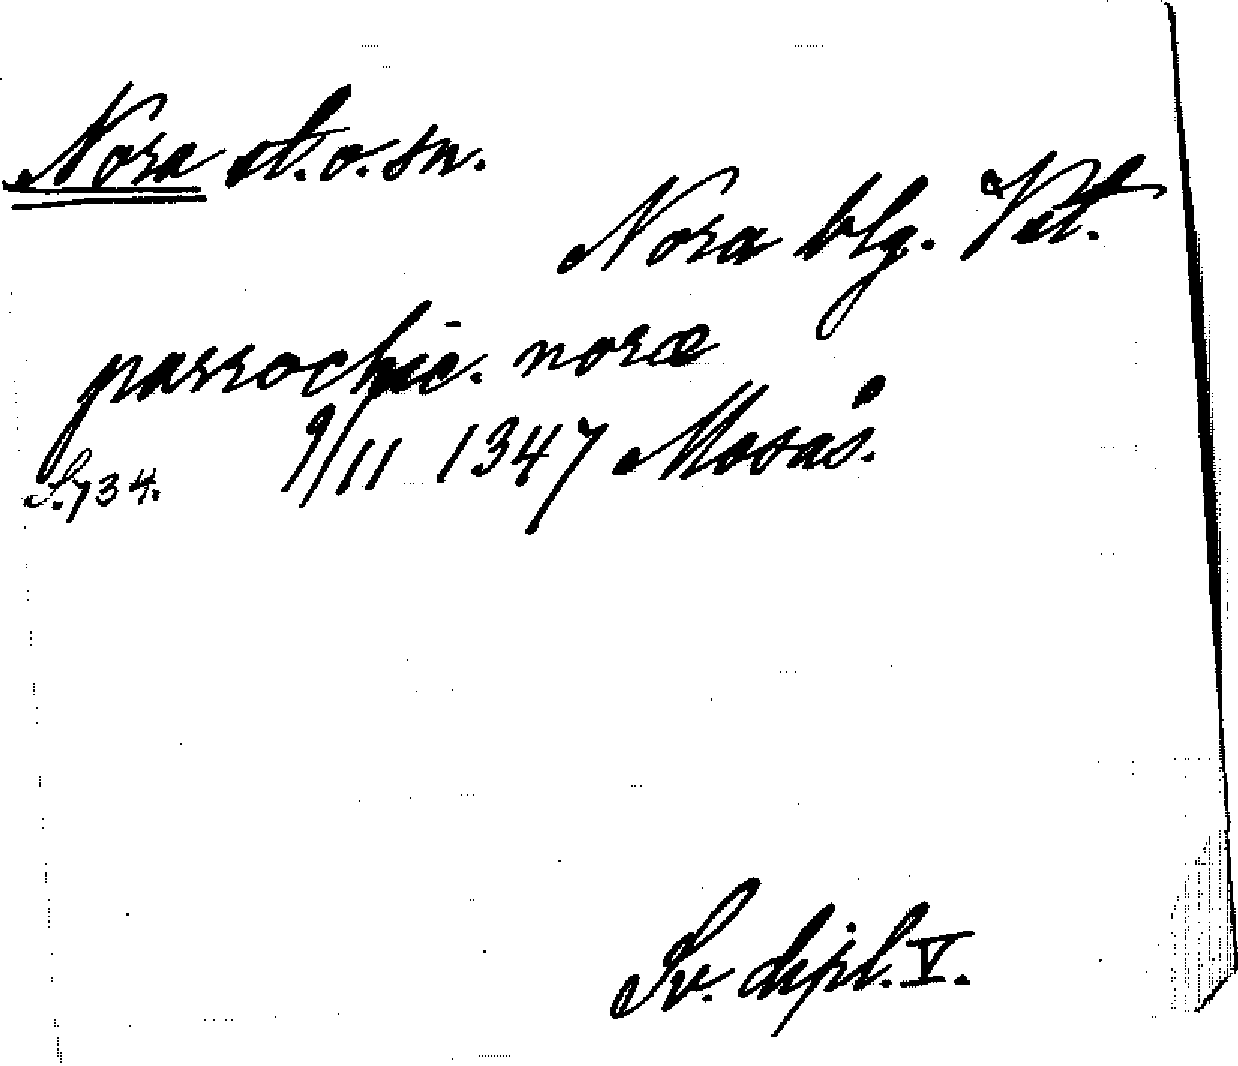 Nora st. o. sn.
Nora blg. Vet.
parrochie. noræ
9/11 1347 Mosås.
S. 734.
Sv. dipl. V.